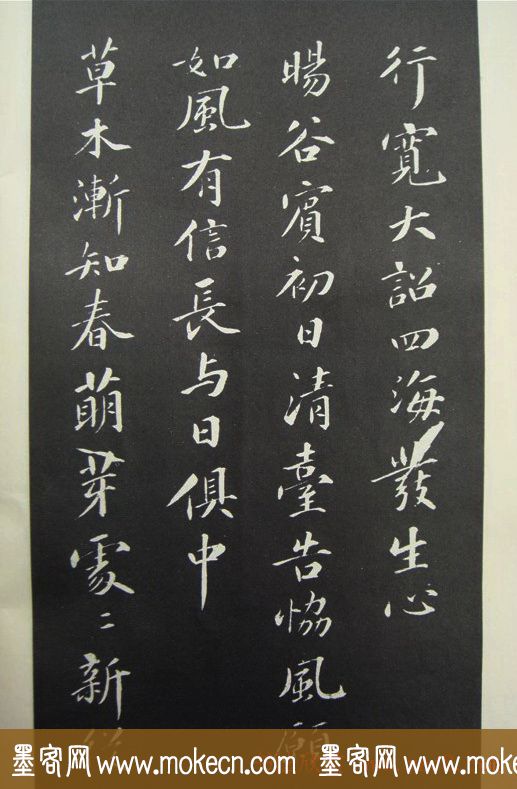 行寬大詔四海發生心
暘谷賓初日清臺告協風願
如風有信長与日俱中
草木漸知春萌芽處〻新從
墨客网 www.mokecn.com 墨客网 www.mokecn.com